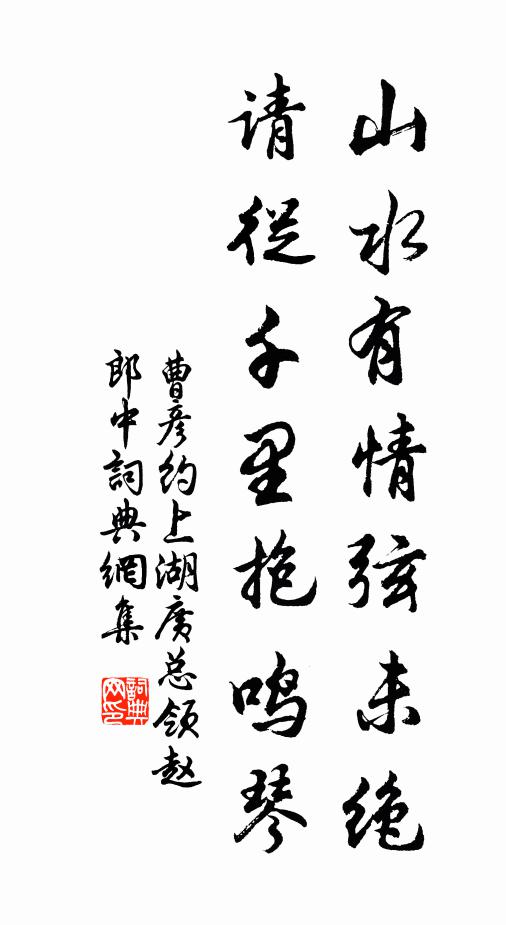 山水有情弦未绝
请從千里抱鸣琴
曹彦约上湖廣总领赵
郎中詞典網集
詞典网印